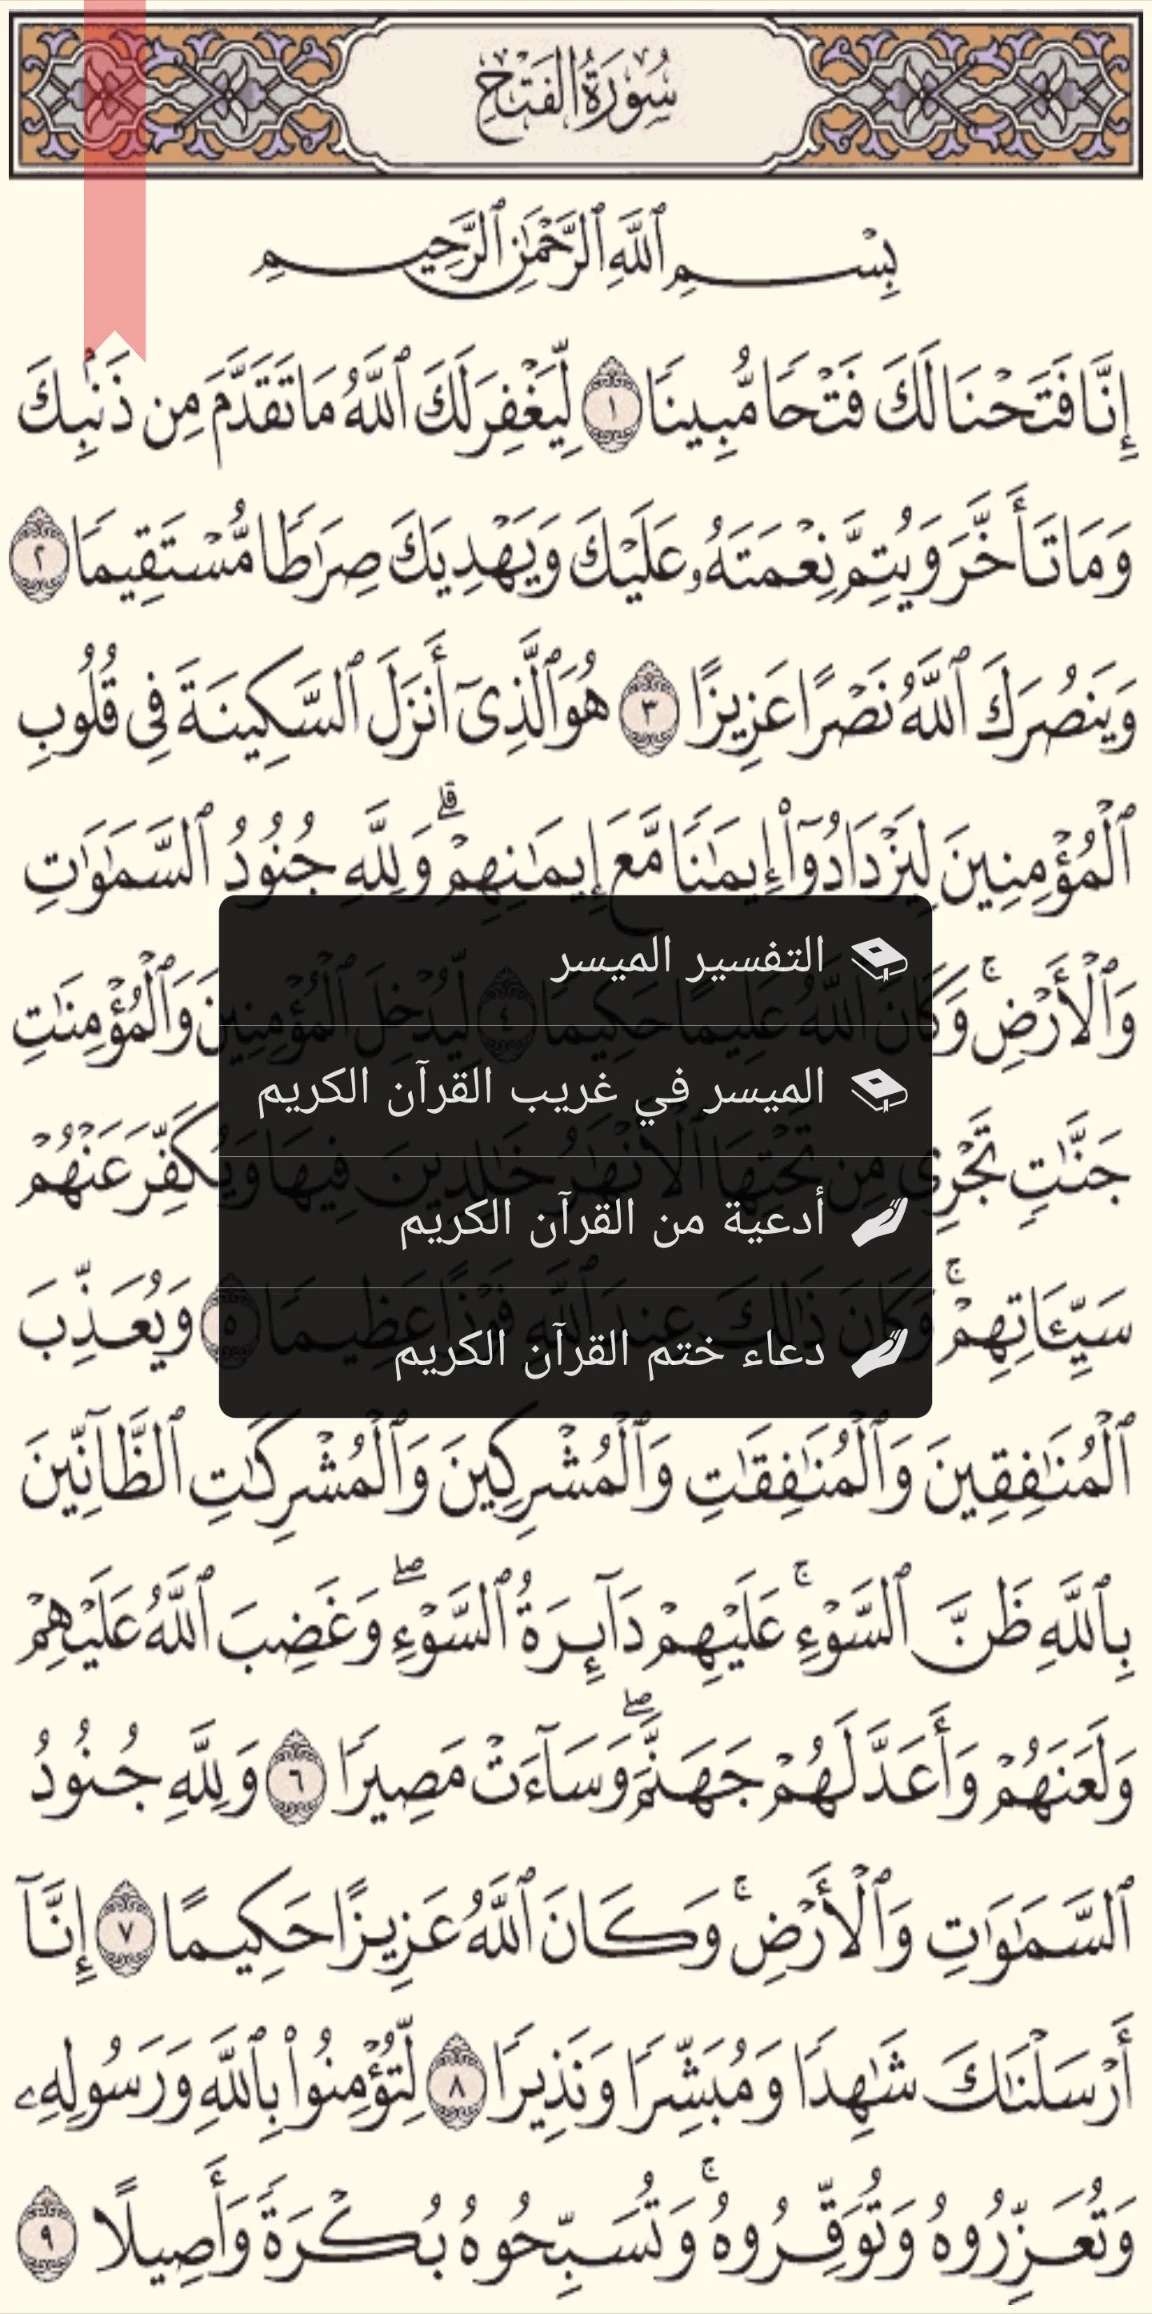 سُورَةُ الفَتْحِ
بِسْمِ ٱللَّهِ ٱلرَّحْمَٰنِ ٱلرَّحِيمِ
إِنَّا فَتَحْنَا لَكَ فَتْحًا مُّبِينًا ١ لِّيَغْفِرَ لَكَ ٱللَّهُ مَا تَقَدَّمَ مِن ذَنۢبِكَ
وَمَا تَأَخَّرَ وَيُتِمَّ نِعْمَتَهُۥ عَلَيْكَ وَيَهْدِيَكَ صِرَٰطًا مُّسْتَقِيمًا ٢
وَيَنصُرَكَ ٱللَّهُ نَصْرًا عَزِيزًا ٣ هُوَ ٱلَّذِىٓ أَنزَلَ ٱلسَّكِينَةَ فِى قُلُوبِ
ٱلْمُؤْمِنِينَ لِيَزْدَادُوٓا۟ إِيمَٰنًا مَّعَ إِيمَٰنِهِمْ ۗ وَلِلَّهِ جُنُودُ ٱلسَّمَٰوَٰتِ
وَٱلْأَرْضِ ۚ وَكَانَ ٱللَّهُ عَلِيمًا حَكِيمًا ٤ لِّيُدْخِلَ ٱلْمُؤْمِنِينَ وَٱلْمُؤْمِنَٰتِ
جَنَّٰتٍ تَجْرِى مِن تَحْتِهَا ٱلْأَنْهَٰرُ خَٰلِدِينَ فِيهَا وَيُكَفِّرَ عَنْهُمْ
سَيِّـَٔاتِهِمْ ۚ وَكَانَ ذَٰلِكَ عِندَ ٱللَّهِ فَوْزًا عَظِيمًا ٥ وَيُعَذِّبَ
ٱلْمُنَٰفِقِينَ وَٱلْمُنَٰفِقَٰتِ وَٱلْمُشْرِكِينَ وَٱلْمُشْرِكَٰتِ ٱلظَّآنِّينَ
بِٱللَّهِ ظَنَّ ٱلسَّوْءِ ۚ عَلَيْهِمْ دَآئِرَةُ ٱلسَّوْءِ ۖ وَغَضِبَ ٱللَّهُ عَلَيْهِمْ
وَلَعَنَهُمْ وَأَعَدَّ لَهُمْ جَهَنَّمَ ۖ وَسَآءَتْ مَصِيرًا ٦ وَلِلَّهِ جُنُودُ
ٱلسَّمَٰوَٰتِ وَٱلْأَرْضِ ۚ وَكَانَ ٱللَّهُ عَزِيزًا حَكِيمًا ٧ إِنَّآ
أَرْسَلْنَٰكَ شَٰهِدًا وَمُبَشِّرًا وَنَذِيرًا ٨ لِّتُؤْمِنُوا۟ بِٱللَّهِ وَرَسُولِهِۦ
وَتُعَزِّرُوهُ وَتُوَقِّرُوهُ ۚ وَتُسَبِّحُوهُ بُكْرَةً وَأَصِيلًا ٩
التفسير الميسر
الميسر في غريب القرآن الكريم
أدعية من القرآن الكريم
دعاء ختم القرآن الكريم